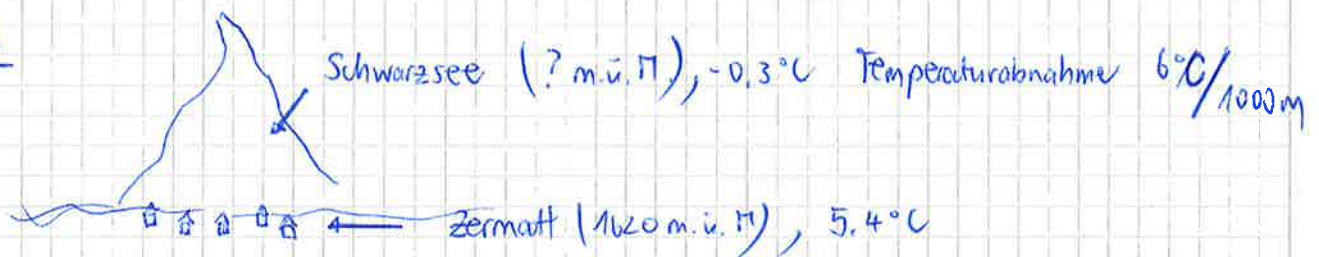 Schwarzsee (? m.ü.M), -0.3°C Temperaturabnahme 6°C/1000m
Zermatt (1620 m.ü.M), 5.4°C